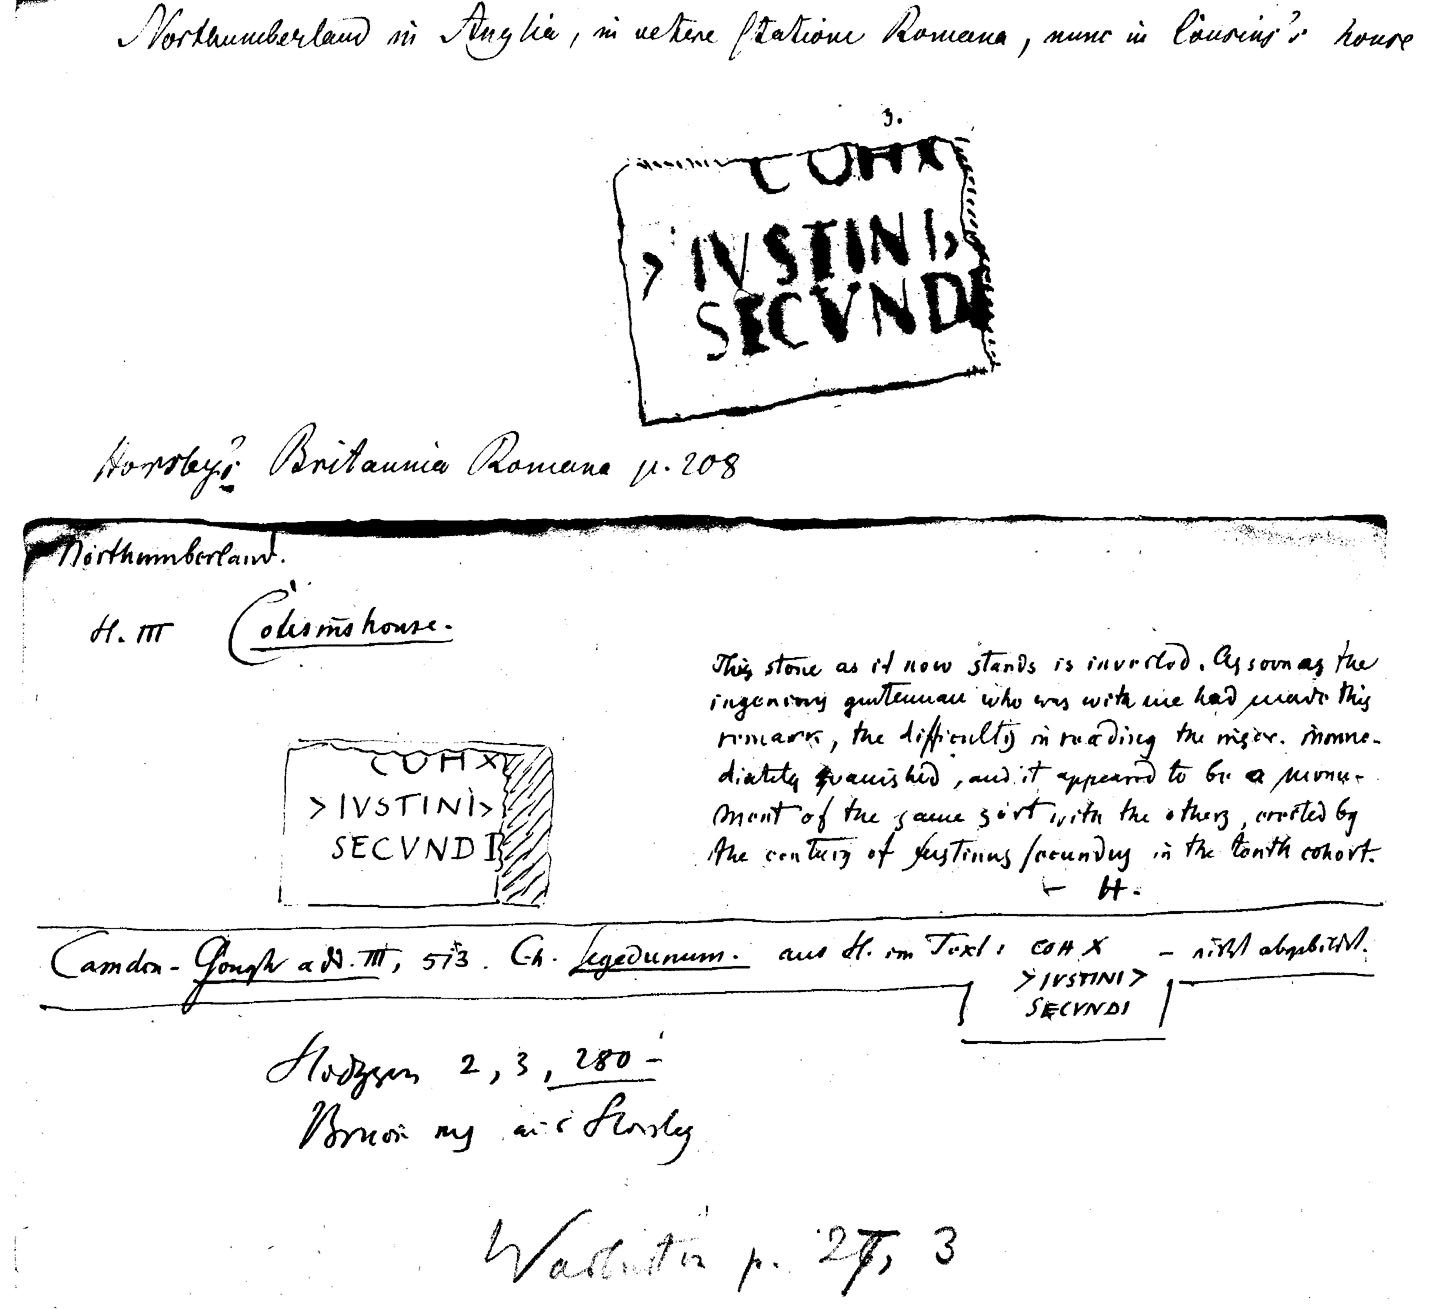 Northumberland in Anglia, in vetere Statione Romana, nunc in Cousins's house
3.
COHX
> IVSTINI>
SECVNDI
Horsley's Britannia Romana p. 208
Northumberland.
H. III Cousinshouse.
This stone as it now stands is inverted. As soon as the
ingenious gentleman who was with me had made this
remark, the difficulty in reading the inscr. imme-
diately vanished, and it appeared to be a monu-
ment of the same sort with the others, erected by
the century of Justinus Secundus in the tenth cohort.
– H.
COHX
>IVSTINI>
SECVNDI
Camden-Gough add. III, 513. Ch. Segedunum. aus H. im Text: COH X – nicht abgebildet.
>IVSTINI>
SECVNDI
Hodgson 2, 3, 280 –
Bruce aus Horsley
p. 27, 3